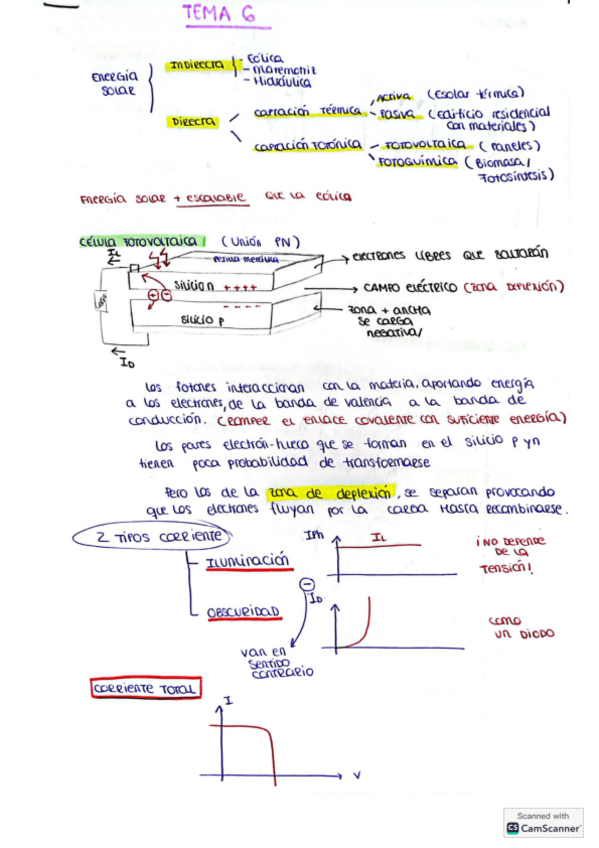 TEMA 6
ENERGÍA SOLAR
INDIRECTA
- EÓLICA
- MAREMOTRIZ
- HIDRÁULICA
DIRECTA
CAPTACIÓN TÉRMICA
ACTIVA (ESOLAR TÉRMICA)
PASIVA (EDIFICIO RESIDENCIAL
CON MATERIALES)
CAPTACIÓN FOTÓNICA
FOTOVOLTAICA (PANELES)
FOTOQUÍMICA (BIOMASA/
FOTOSÍNTESIS)
ENERGÍA SOLAR + ESCALABLE QUE LA EÓLICA
CÉLULA FOTOVOLTAICA (UNIÓN PN)
IL
SILICIO n ++++
- - - -
SILICIO P
ID
ELECTRONES LIBRES QUE SALTARÁN
CAMPO ELÉCTRICO (ZONA DEPLEXIÓN)
ZONA + ANCHA
SE CARGA
NEGATIVA/
Los fotones interaccionan con la materia, aportando energía
a los electrones, de la banda de valencia a la banda de
conducción. (ROMPER EL ENLACE COVALENTE CON SUFICIENTE ENERGÍA)
Los pares electrón-hueco que se forman en el silicio P y n
tienen poca probabilidad de transformarse
Pero los de la zona de deplexión, se separan provocando
que los electrones fluyan por la carga hasta recombinarse.
2 TIPOS CORRIENTE
ILUMINACIÓN
IPh
IL
¡NO DEPENDE
DE LA
TENSIÓN!
OBSCURIDAD
ID
COMO
UN DIODO
VAN EN
SENTIDO
CONTRARIO
CORRIENTE TOTAL
I
V
Scanned with
CS CamScanner